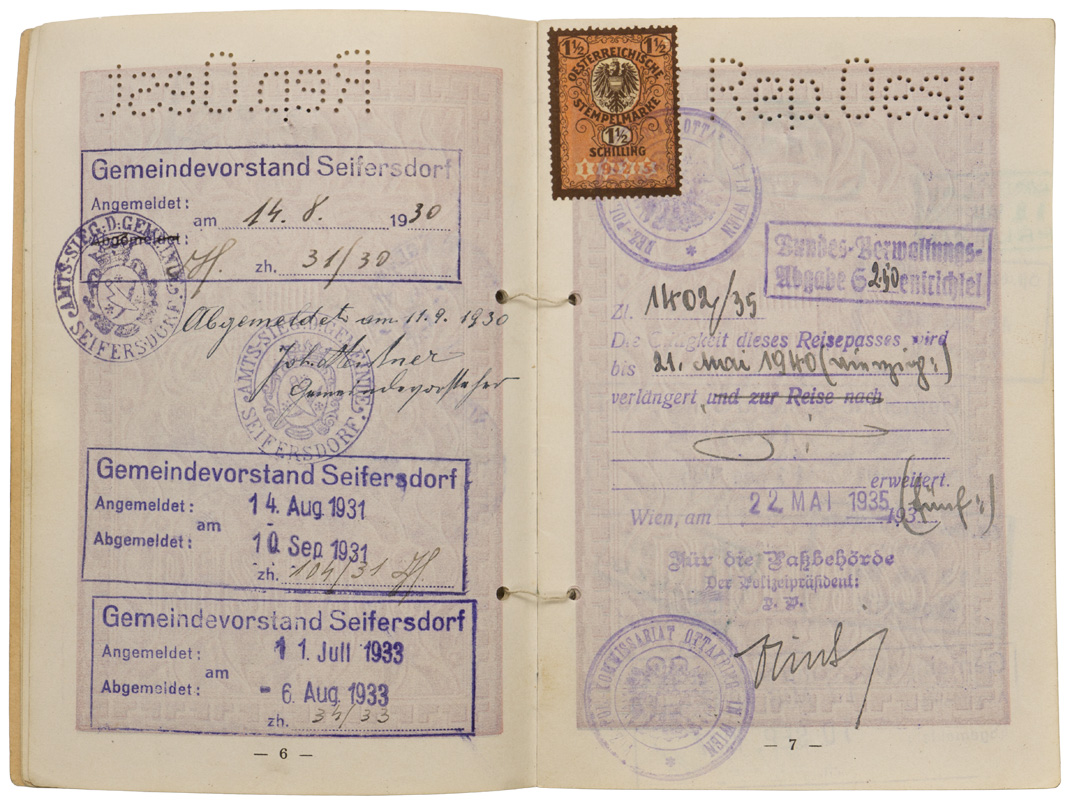 Rep. Oest.
Gemeindevorstand Seifersdorf
Angemeldet:
am 14. 8. 1930
Abgemeldet:
zh. 31/30
AMTS-SIEG.D.GEMEINDE
SEIFERSDORF
Abgemeldet am 11.9. 1930
Gemeindevorsteher
AMTS-SIEG.D.GEMEINDE
SEIFERSDORF.
Gemeindevorstand Seifersdorf
Angemeldet: 14. Aug 1931
am
Abgemeldet: 10 Sep 1931
zh. 104/31
Gemeindevorstand Seifersdorf
Angemeldet: 11. Juli 1933
am
Abgemeldet: - 6. Aug 1933
zh. 34/33
— 6 —
Rep. Oest.
1½ 1½
OESTERREICHISCHE
STEMPELMARKE
1½
SCHILLING
IN WIEN
Bundes-Verwaltungs-
Abgabe S 2.50 entrichtet
Zl. 1402/35
Die Gültigkeit dieses Reisepasses wird
bis 21. Mai 1940 (vierzig:)
verlängert und zur Reise nach
erweitert.
Wien, am 22 MAI 1935 193 (fünf:)
Für die Paßbehörde
Der Polizeipräsident:
POL KOMMISSARIAT OTTAKRING IN WIEN
— 7 —